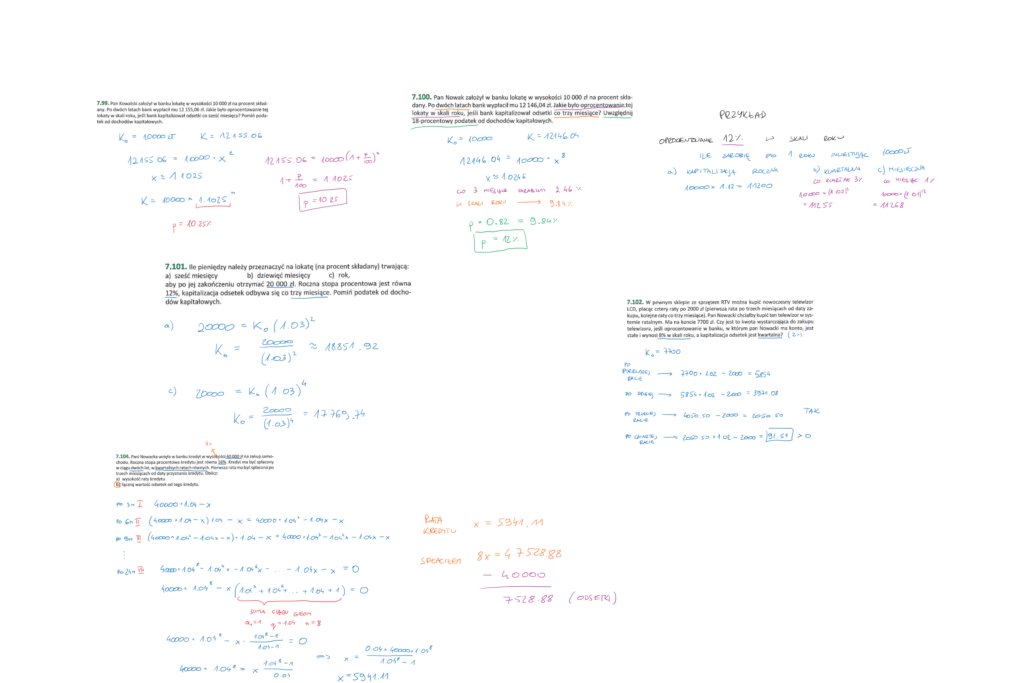 7.99. Pan Kowalski założył w banku lokatę w wysokości 10 000 zł na procent składany. Po dwóch latach bank wypłacił mu 12 155,06 zł. Jakie było oprocentowanie tej lokaty w skali roku, jeśli bank kapitalizował odsetki co sześć miesięcy? Pomiń podatek od dochodów kapitałowych.
K₀ = 10000 zł K = 12155.06
12155.06 = 10000 · x²
x = 1.1025
K = 10000 · 1.1025
p = 10.25%
12155.06 = 10000(1 + p/100)²
1 + p/100 = 1.1025
p = 10.25
7.100. Pan Nowak założył w banku lokatę w wysokości 10 000 zł na procent składany. Po dwóch latach bank wypłacił mu 12 146,04 zł. Jakie było oprocentowanie tej lokaty w skali roku, jeśli bank kapitalizował odsetki co trzy miesiące? Uwzględnij 18-procentowy podatek od dochodów kapitałowych.
K₀ = 10000 K = 12146.04
12146.04 = 10000 · x⁸
x ≈ 1.0246
CO 3 MIESIĄCE ZARABIAM 2.46%
W SKALI ROKU → 9.84%
p · 0.82 = 9.84%
p = 12%
PRZYKŁAD
OPROCENTOWANIE 12% W SKALI ROKU
ILE ZAROBIĘ PO 1 ROKU INWESTUJĄC 10000 zł
a) KAPITALIZACJA ROCZNA
10000 · 1.12 = 11200
b) KWARTALNA
CO KWARTAŁ 3%
10000 · (1.03)⁴
= 11255
c) MIESIĘCZNA
CO MIESIĄC 1%
10000 · (1.01)¹²
= 11268
7.101. Ile pieniędzy należy przeznaczyć na lokatę (na procent składany) trwającą:
a) sześć miesięcy b) dziewięć miesięcy c) rok,
aby po jej zakończeniu otrzymać 20 000 zł. Roczna stopa procentowa jest równa
12%, kapitalizacja odsetek odbywa się co trzy miesiące. Pomiń podatek od dochodów kapitałowych.
a) 20000 = K₀ (1.03)²
K₀ = 20000/(1.03)² ≈ 18851.92
c) 20000 = K₀ (1.03)⁴
K₀ = 20000/(1.03)⁴ = 17769.74
7.102. W pewnym sklepie ze sprzętem RTV można kupić nowoczesny telewizor
LCD, płacąc cztery raty po 2000 zł (pierwsza rata po trzech miesiącach od daty zakupu, kolejne raty co trzy miesiące). Pan Nowacki chciałby kupić ten telewizor w systemie ratalnym. Ma na koncie 7700 zł. Czy jest to kwota wystarczająca do zakupu
telewizora, jeśli oprocentowanie w banku, w którym pan Nowacki ma konto, jest
stałe i wynosi 8% w skali roku, a kapitalizacja odsetek jest kwartalna? (2%)
K₀ = 7700
PO PIERWSZEJ RACIE → 7700 · 1.02 − 2000 = 5854
PO DRUGIEJ → 5854 · 1.02 − 2000 = 3971.08
PO TRZECIEJ RACIE → 4050.50 − 2000 = 2050.50 TAK
PO CZWARTEJ RACIE → 2050.50 · 1.02 − 2000 = 91.51 > 0
7.104. Pani Nowacka wzięła w banku kredyt w wysokości 40 000 zł na zakup samochodu. Roczna stopa procentowa kredytu jest równa 16%. Kredyt ma być spłacony
w ciągu dwóch lat, w kwartalnych ratach równych. Pierwsza rata ma być spłacona po
trzech miesiącach od daty przyznania kredytu. Oblicz:
a) wysokość raty kredytu
b) łączną wartość odsetek od tego kredytu.
4%
PO 3M I 40000 · 1.04 − x
PO 6M II (40000 · 1.04 − x) 1.04 − x = 40000 · 1.04² − 1.04x − x
PO 9M III (40000 · 1.04² − 1.04x − x) · 1.04 − x = 40000 · 1.04³ − 1.04²x − 1.04x − x
⋮
PO 24M VIII 40000 · 1.04⁸ − 1.04⁷x − 1.04⁶x − ... − 1.04x − x = 0
40000 · 1.04⁸ − x (1.04⁷ + 1.04⁶ + ... + 1.04 + 1) = 0
SUMA CIĄGU GEOM
a₁ = 1 q = 1.04 n = 8
40000 · 1.04⁸ − x · (1.04⁸ − 1)/(1.04 − 1) = 0
40000 · 1.04⁸ = x (1.04⁸ − 1)/0.04
⇒ x = (0.04 · 40000 · 1.04⁸)/(1.04⁸ − 1)
x = 5941.11
RATA KREDYTU x = 5941.11
SPŁACIŁEM 8x = 47528.88
− 40000
7528.88 (ODSETKI)